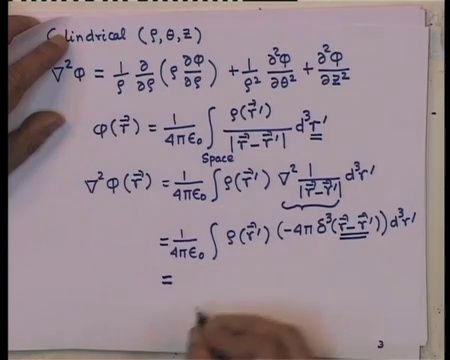 Cylindrical (ρ, θ, z)
∇²φ = 1/ρ ∂/∂ρ (ρ ∂φ/∂ρ) + 1/ρ² ∂²φ/∂θ² + ∂²φ/∂z²
φ(r⃗) = 1/4πε₀ ∫ ρ(r⃗')/|r⃗-r⃗'| d³r'
Space
∇²φ(r⃗) = 1/4πε₀ ∫ ρ(r⃗') ∇² 1/|r⃗-r⃗'| d³r'
= 1/4πε₀ ∫ ρ(r⃗') (-4π δ³(r⃗-r⃗')) d³r'
=
3